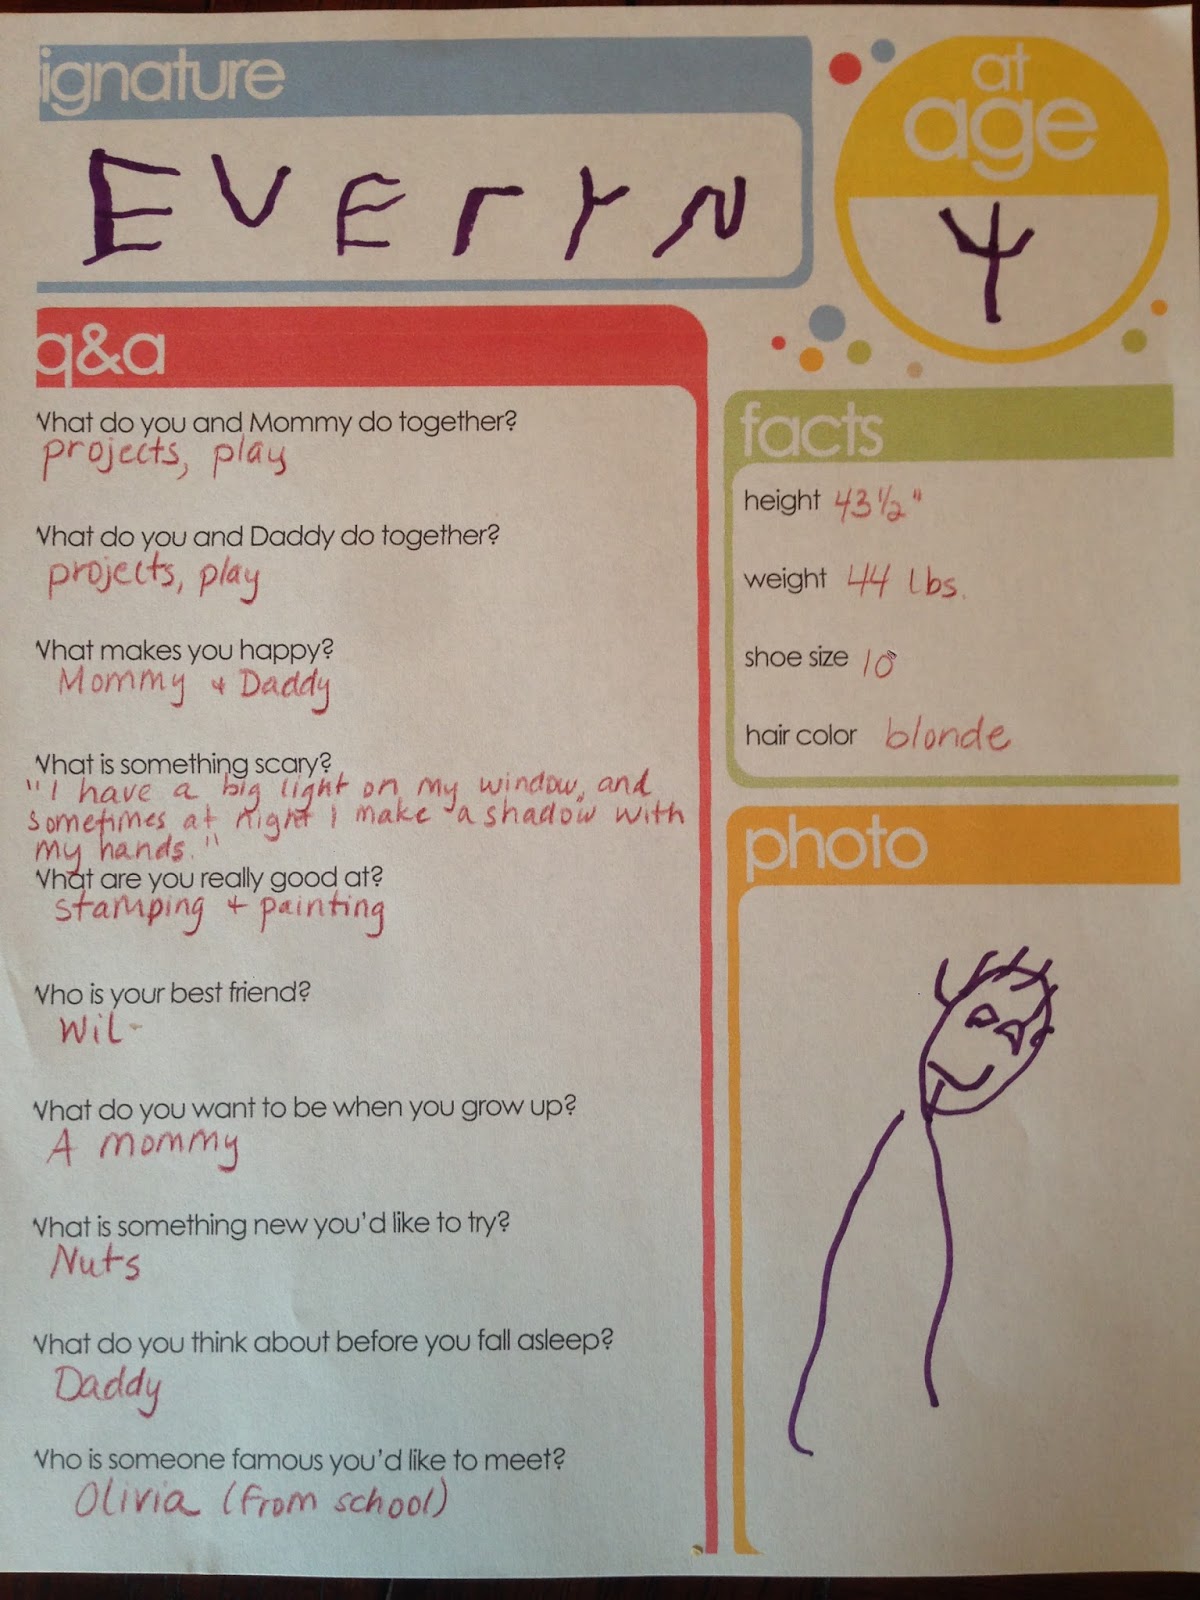 ignature
EVErYN
at
age
4
q&a
What do you and Mommy do together?
projects, play
What do you and Daddy do together?
projects, play
What makes you happy?
Mommy + Daddy
What is something scary?
"I have a big light on my window, and
sometimes at night I make a shadow with
my hands."
What are you really good at?
stamping + painting
Who is your best friend?
Wil
What do you want to be when you grow up?
A mommy
What is something new you'd like to try?
Nuts
What do you think about before you fall asleep?
Daddy
Who is someone famous you'd like to meet?
Olivia (from school)
facts
height 43 1/2"
weight 44 lbs.
shoe size 10
hair color blonde
photo